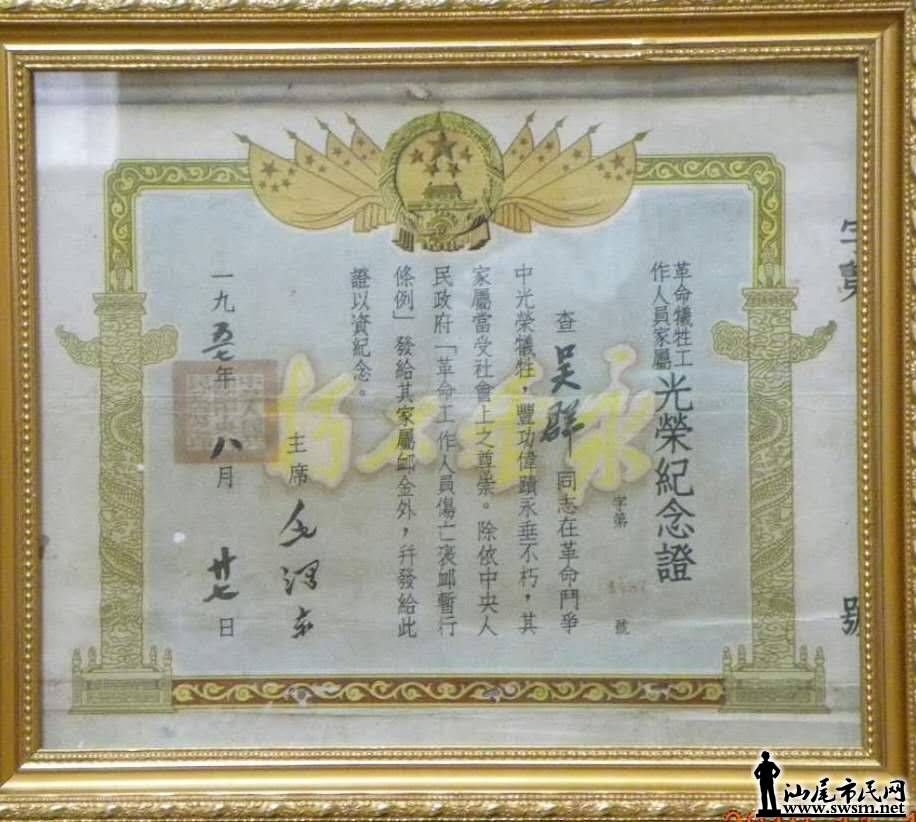 革命犧牲工
作人員家屬
光榮紀念證
字第 號
查吳群同志在革命鬥爭
中光榮犧牲，豐功偉蹟永垂不朽，其
家屬當受社會上之尊崇。除依中央人
民政府「革命工作人員傷亡褒卹暫行
條例」發給其家屬卹金外，幷發給此
證以資紀念。
主席 毛澤東
一九五七年八月廿七日
永垂不朽
字第 號
汕尾市民网
www.swsm.net